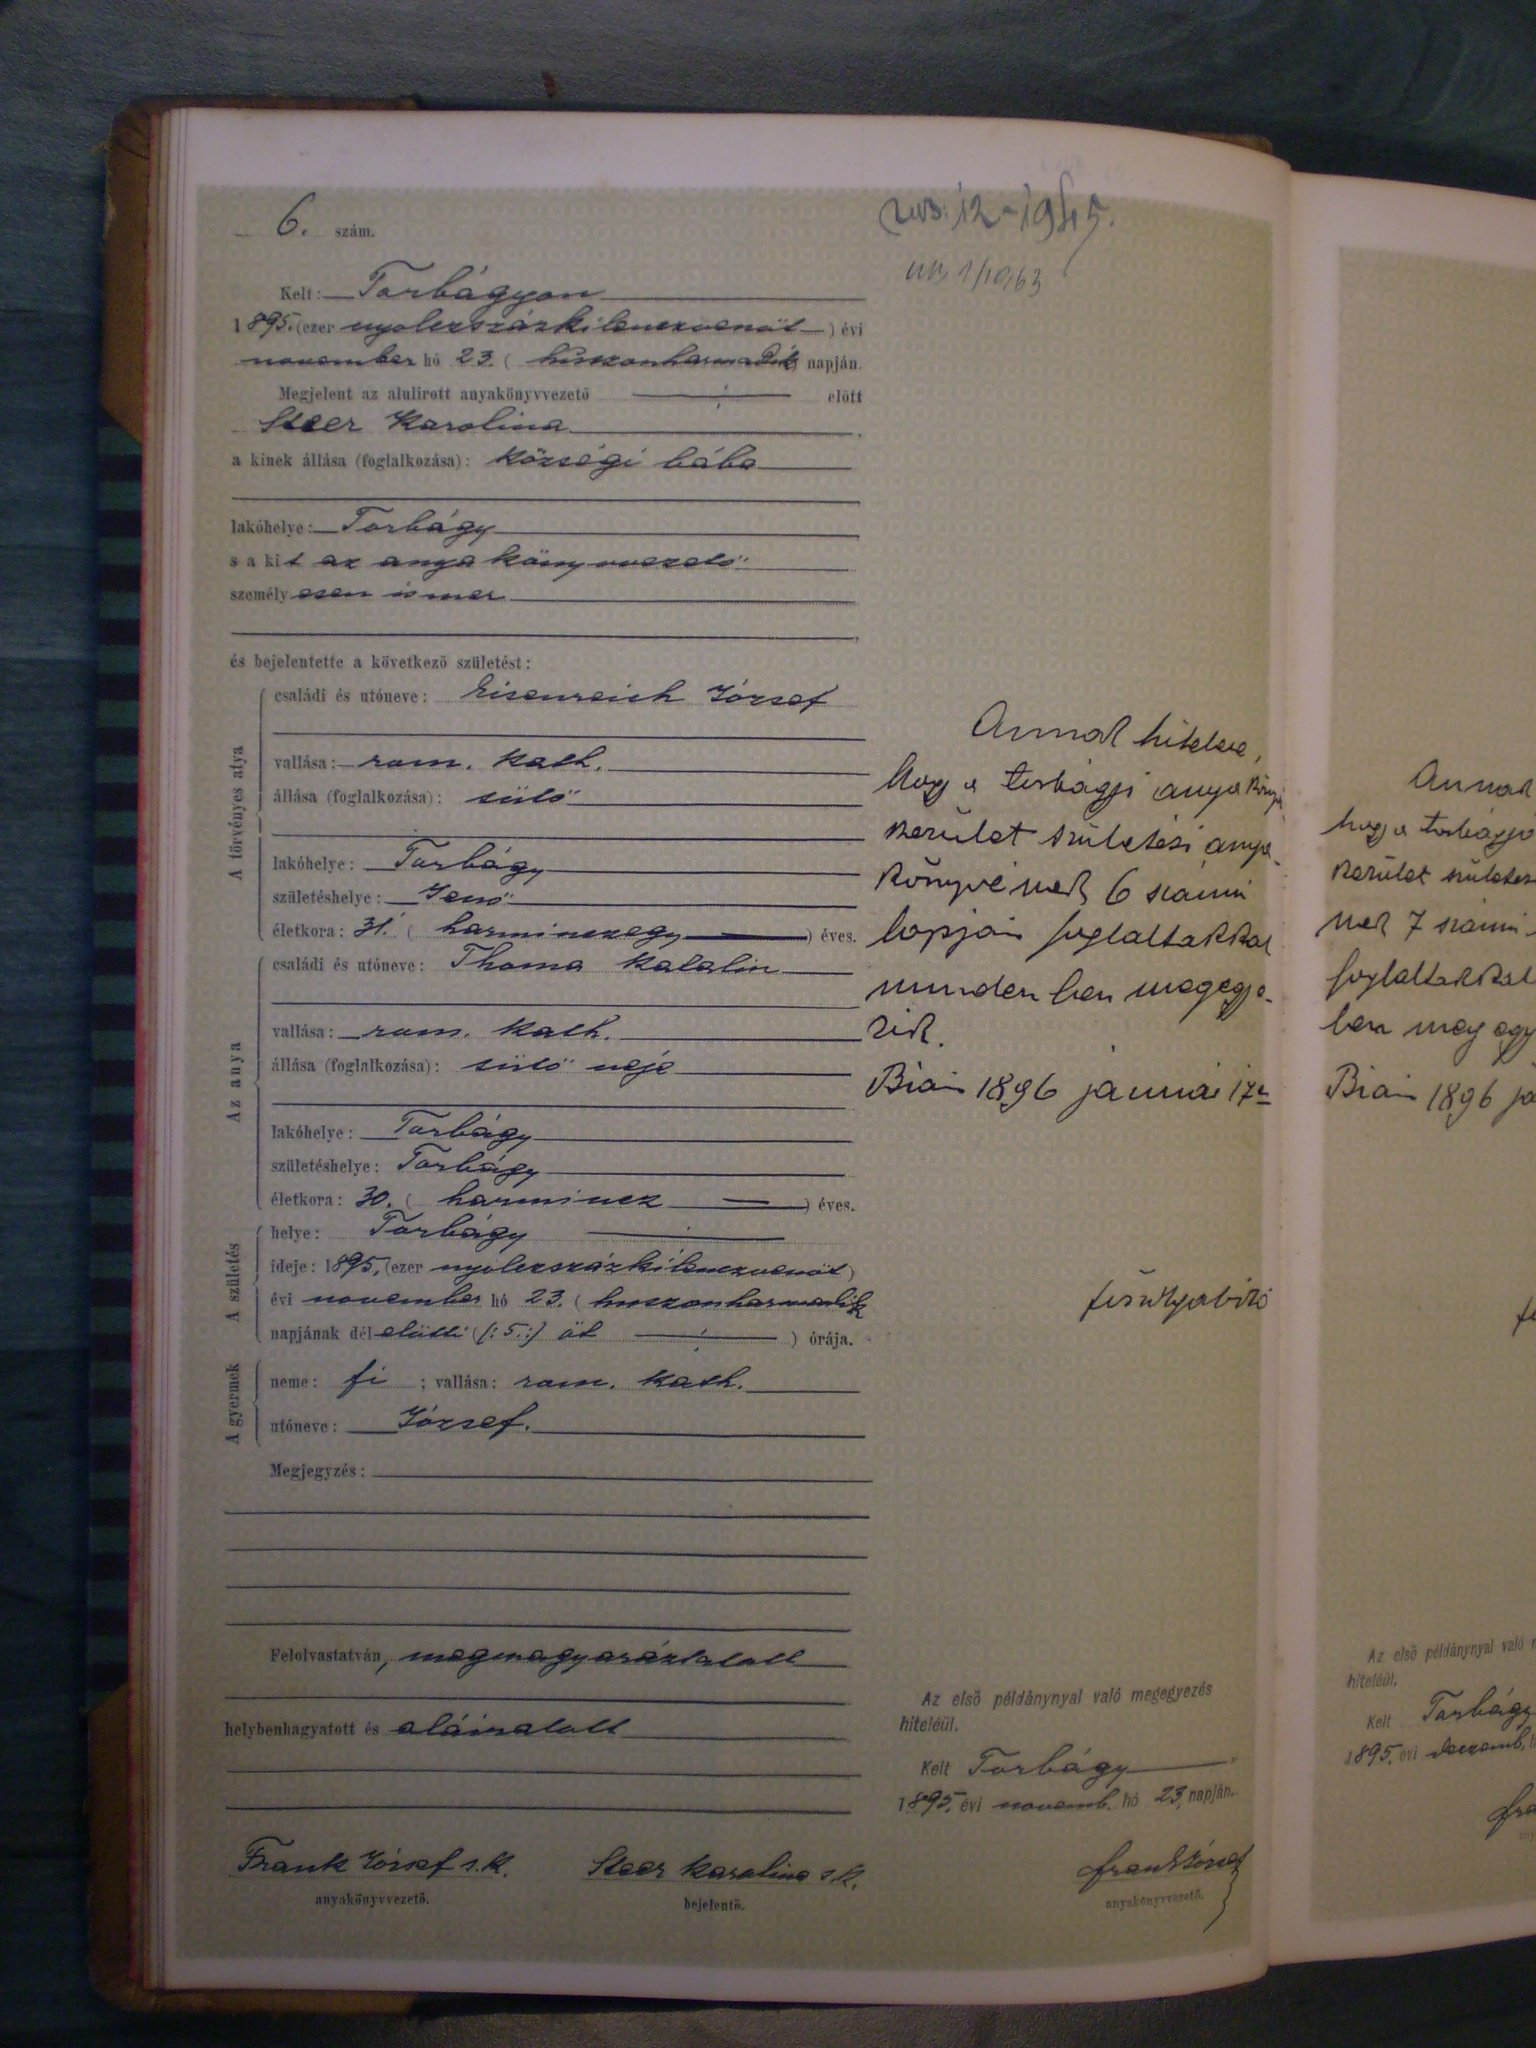 6. szám.
Kelt: Torbágyon
1895. (ezer nyolczszázkilenczvenöt) évi
november hó 23. ( huszonharmadik) napján.
Megjelent az alulirott anyakönyvvezető előtt
Steer Karolina
a kinek állása (foglalkozása): községi bába
lakóhelye: Torbágy
s a kit az anyakönyvvezető
személyesen ismer
és bejelentette a következő születést:
A törvényes atya
családi és utóneve: Eisenreich József
vallása: rom. kath.
állása (foglalkozása): sütő
lakóhelye: Torbágy
születéshelye: Jenő
életkora: 31. ( harminczegy ) éves.
Az anya
családi és utóneve: Thoma Katalin
vallása: rom. kath.
állása (foglalkozása): sütő neje
lakóhelye: Torbágy
születéshelye: Torbágy
életkora: 30. ( harmincz ) éves.
A születés
helye: Torbágy
ideje: 1895, (ezer nyolczszázkilenczvenöt)
évi november hó 23. ( huszonharmadik
napjának dél előtti (/:5.:/ öt ) órája.
A gyermek
neme: fi ; vallása: rom. kath.
utóneve: József.
Megjegyzés:
Felolvastatván, megmagyaráztatott
helybenhagyatott és aláiratott
Frank József s.k.
anyakönyvvezető.
Steer Karolina s.k.
bejelentő.
12-1945.
1/1963
Annak hitelere,
hogy a torbágyi anyaköny
kerület születési anya-
könyvének 6 számú
lapján foglaltakkal
mindenben megegye-
zik.
Bián 1896 január 17n
Az első példánynyal való megegyezés
hiteléül.
Kelt Torbágy
1895. évi novemb. hó 23, napján.
Frank József
anyakönyvvezető.
Annak
hogy a torbágyi
kerület születési
nek 7 számú
foglaltakkal
ben megegy
Bián 1896 ja
Az első példánynyal való
hiteléül.
Kelt Torbágy
1895. évi deczemb. h